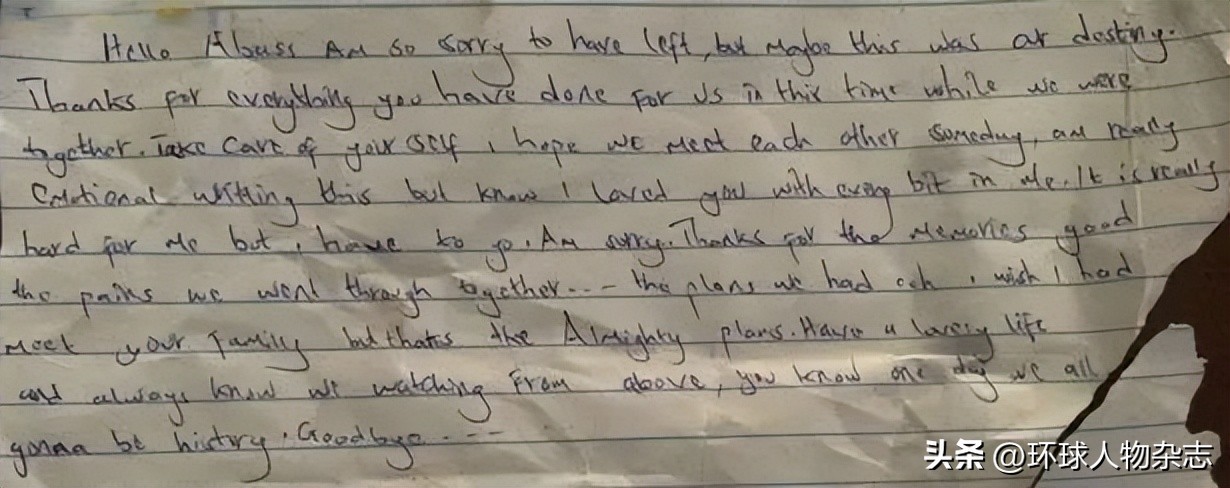 Hello Abuss Am so sorry to have left, but maybe this was our destiny.
Thanks for everything you have done for us in this time while we were
together. Take care of your self i hope we meet each other someday, am really
emotional writting this but know I loved you with every bit in me. It is really
hard for me but i have to go. Am sorry. Thanks for the memories good
the pains we went through together --- the plans we had ooh i wish I had
meet your family but thats the Almighty plans. Have a lovely life
and always know we watching from above, you know one day we all
gonna be history. Goodbye ---
头条 @环球人物杂志